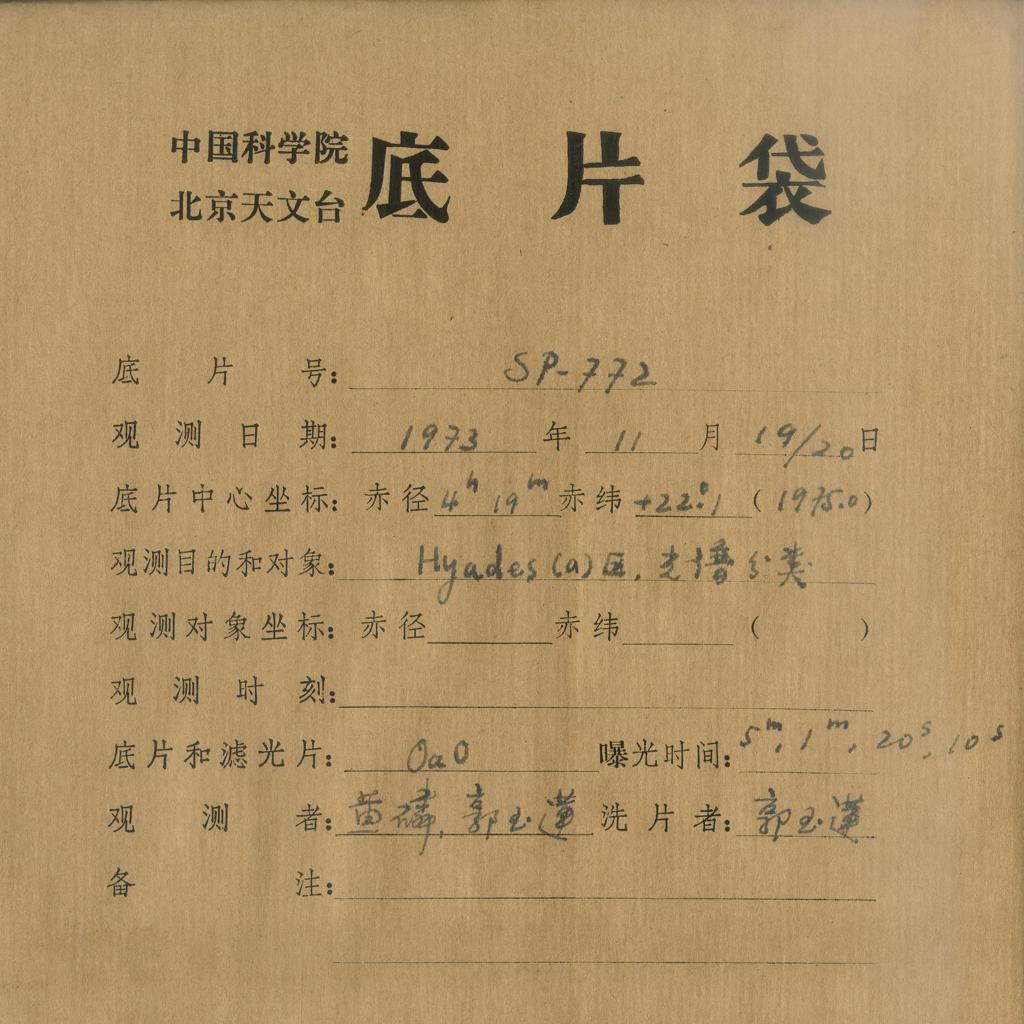 中国科学院
北京天文台
底片袋
底片号: SP-772
观测日期: 1973 年 11 月 19/20 日
底片中心坐标: 赤径 4h 19m 赤纬 +22°.1 (1975.0)
观测目的和对象: Hyades (a) 区, 光谱分类
观测对象坐标: 赤径 赤纬 ( )
观测时刻:
底片和滤光片: OaO 曝光时间: 5m, 1m, 20s, 10s
观测者: 黄磷, 郭玉莲 洗片者: 郭玉莲
备注: